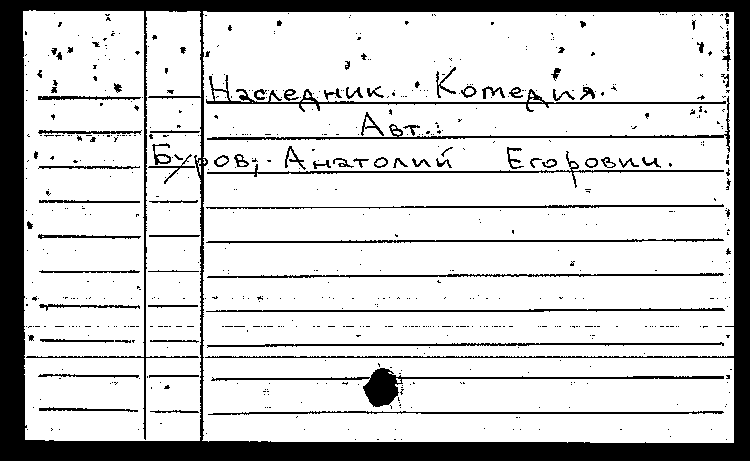 Наследник. Комедия.
Авт.:
Буров, Анатолий Егорович.